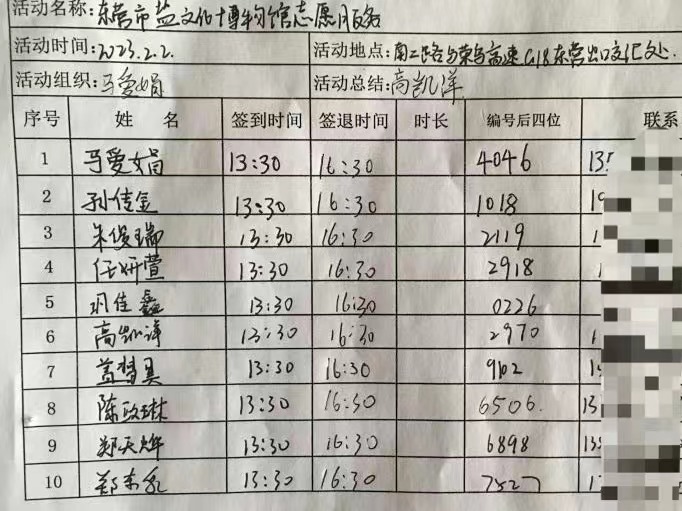 活动名称:东营市盐文化博物馆志愿服务
活动时间:2023.2.2. 活动地点:南二路与荣乌高速G18东营出口交汇处.
活动组织:马爱娟 活动总结:高凯洋
序号 姓 名 签到时间 签退时间 时长 编号后四位 联系
1 马爱娟 13:30 16:30 4046 13
2 孙佳金 13:30 16:30 1018 1
3 朱俊瑞 13:30 16:30 2119 1
4 任妍萱 13:30 16:30 2918
5 佳鑫 13:30 16:30 0226
6 高凯洋 13:30 16:30 2970
7 盖梦昊 13:30 16:30 9102 1
8 陈政琳 13:30 16:30 6506. 13
9 郑天烨 13:30 16:30 6898 13
10 郑 13:30 16:30 7527 1